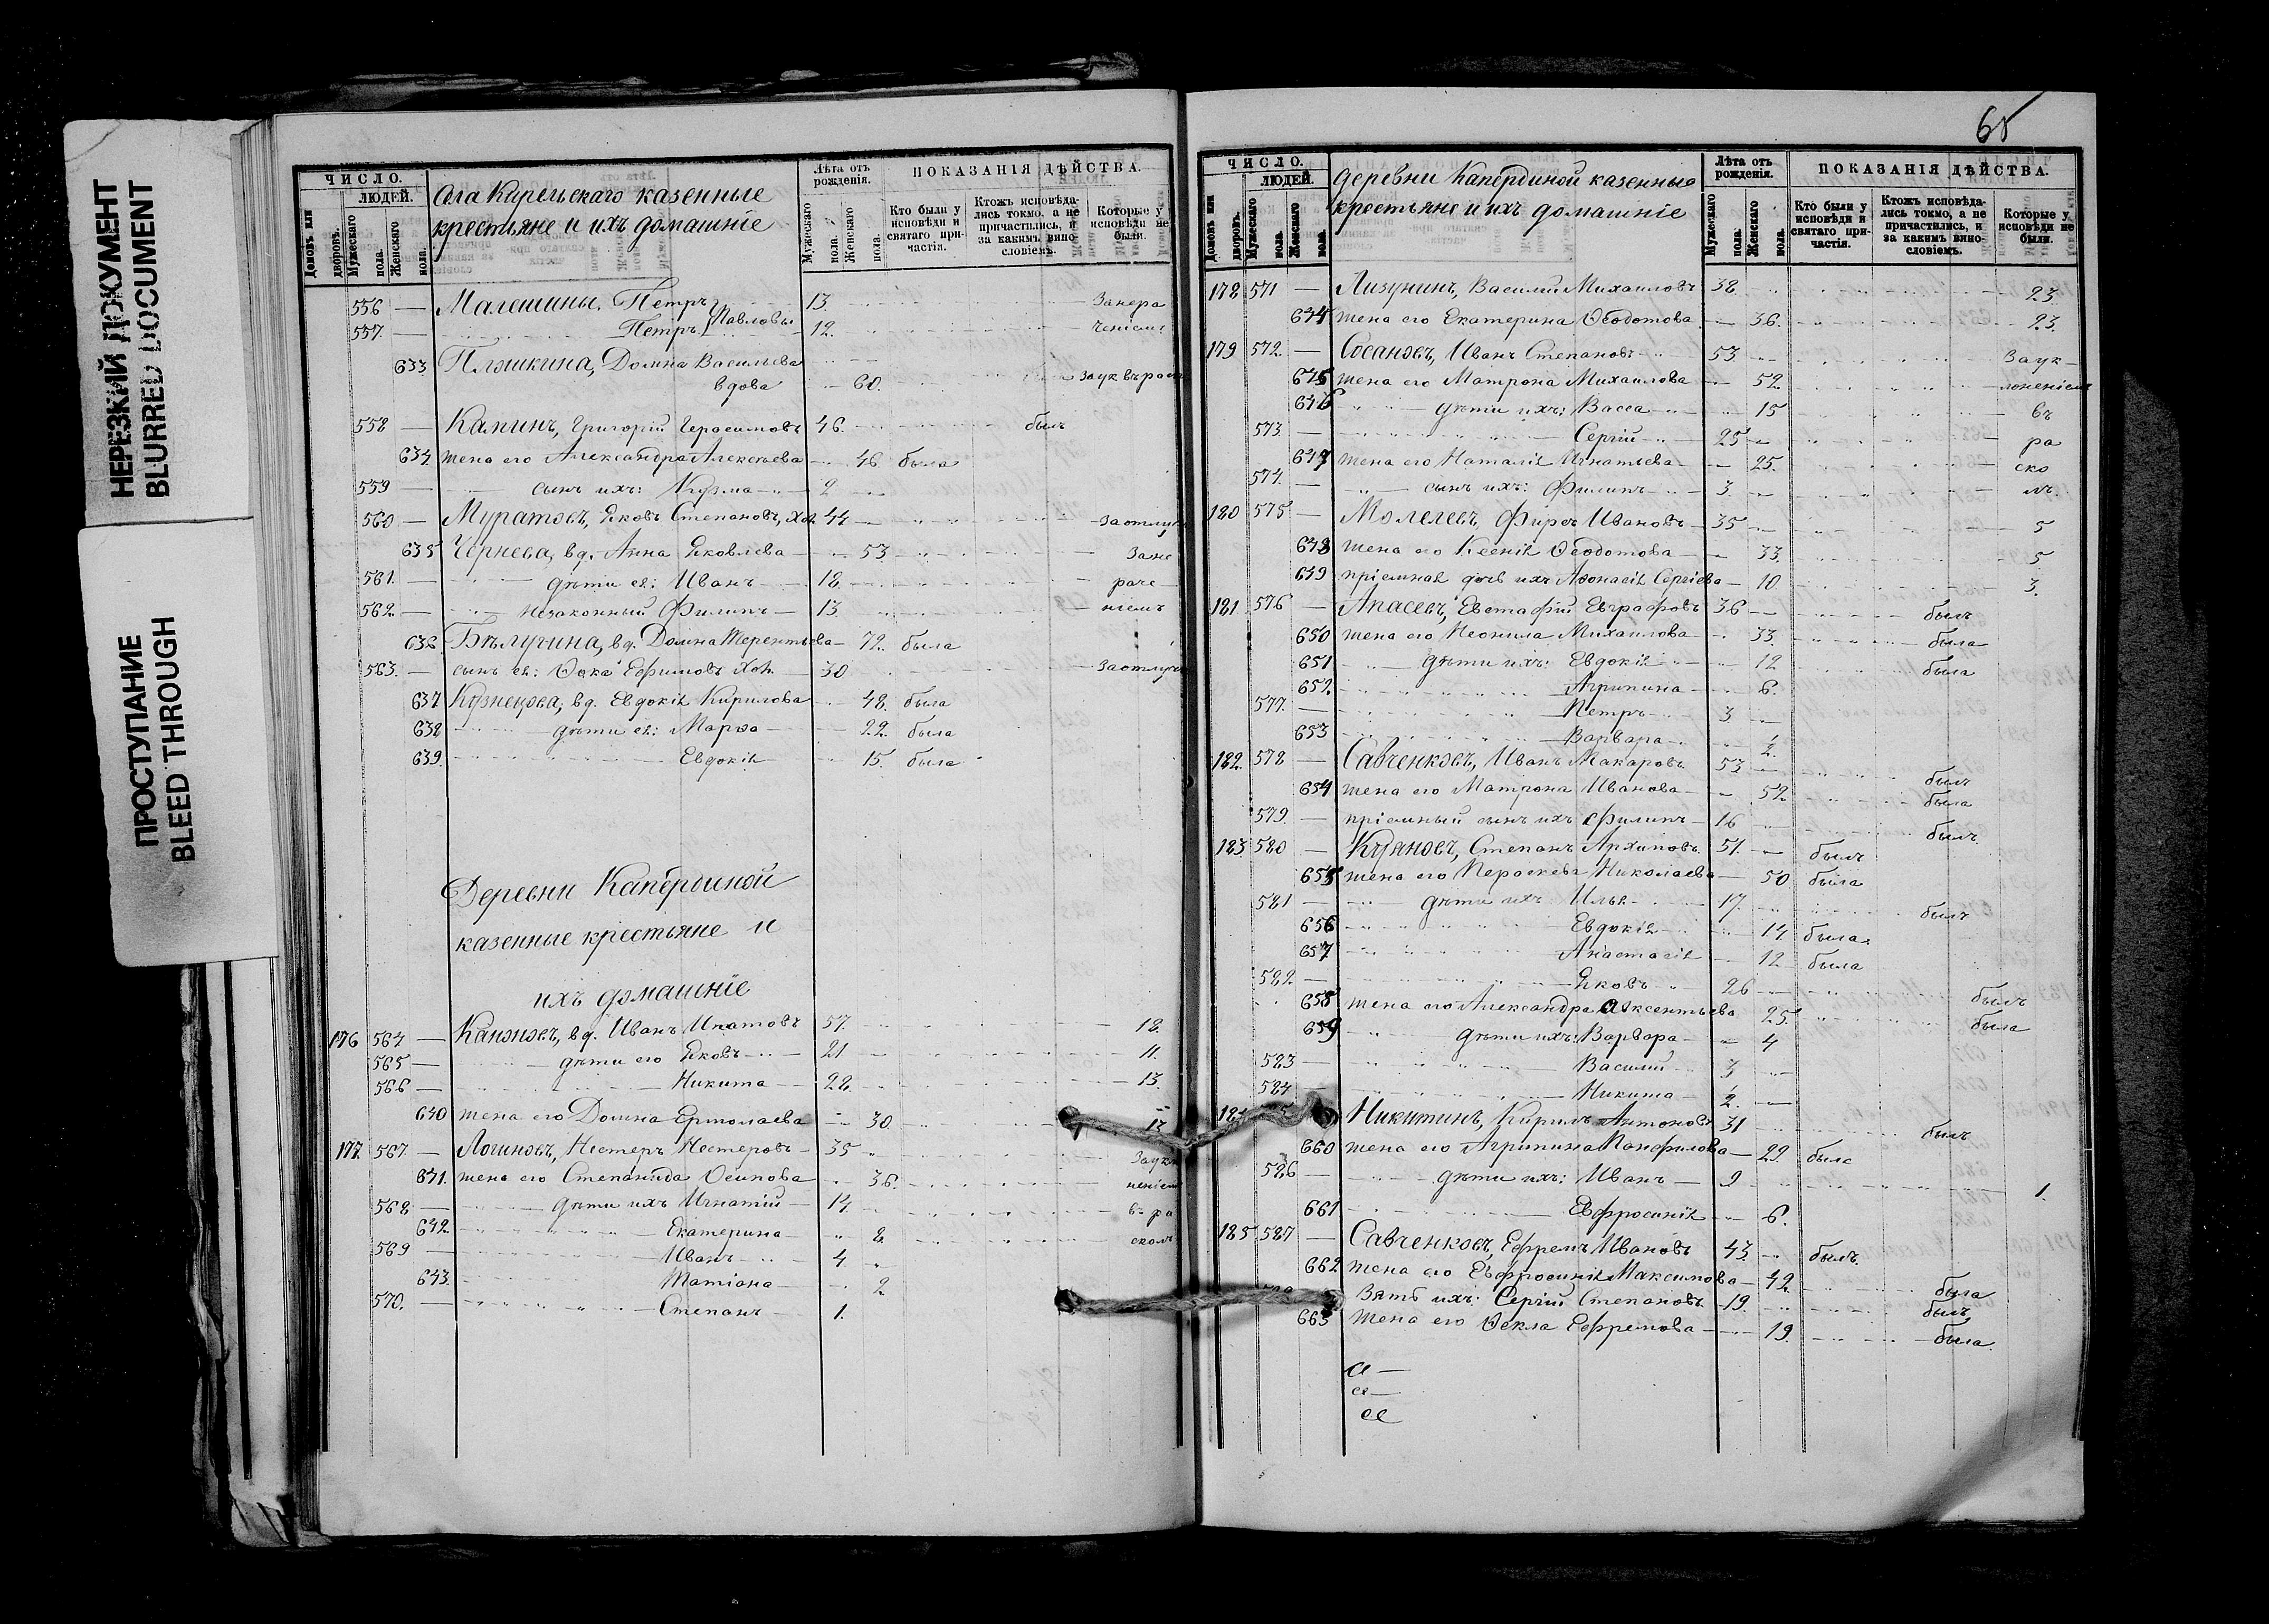 НЕРЕЗКИЙ ДОКУМЕНТ
BLURRED DOCUMENT
ПРОСТУПАНИЕ
BLEED THROUGH
ЧИСЛО.
ЛЮДЕЙ.
Домовъ или дворовъ.
Мужескаго пола.
Женскаго пола.
Села Кирельскаго казенные
крестьяне и ихъ домашніе
Лѣта отъ рожденія.
Мужескаго пола.
Женскаго пола.
ПОКАЗАНІЯ ДѢЙСТВА.
Кто были у исповѣди и святаго причастія.
Ктожъ исповѣдались токмо, а не причастились, и за какимъ винословіемъ.
Которые у исповѣди не были.
556 — Малешины, Петръ 13. Занера
557. — Петръ Павловы 12. ченіемъ
633 Пляшкина, Домна Васильева
вдова 60. Заук въ раск
558 — Капинъ, Григорій Герасимовъ 46. былъ
634 жена его Александра Алексѣева 46 была
559 — сынъ ихъ: Кузма 2
560 — Муратовъ, Яковъ Степановъ, хол. 44 За отлуч
635 Чернева, вд. Анна Яковлева 53 Зане
561. — дѣти ея: Иванъ 18 раче
562. — незаконный Филипъ 13 ніемъ
636 Бѣлугина, вд. Домна Терентьева 72 была
563. — сынъ ея: Ѳока Ефимовъ хол. 30 За отлуч
637 Кузнецова, вд. Евдокія Кирилова 48. была
638 дѣти ея: Марѳа 22 была
639. Евдокія 15. была
Деревни Капердиной
казенные крестьяне и
ихъ домашніе
176 564 — Канюовъ, вд. Иванъ Ипатовъ 57. 18.
565 — дѣти его Яковъ 21 11.
566 — Никита 28. 13.
640 жена его Домна Ермолаева 30. 13
177. 567. — Логиновъ, Нестеръ Нестеровъ 35 Заукл
641. жена его Степанида Осипова 36. неніем
568 — дѣти ихъ Игнатій 14 въ ра
642. Екатерина 8 сколъ
569 — Иванъ 4
643. Татіана 2
570. — Степанъ 1.
65
ЧИСЛО.
ЛЮДЕЙ.
Домовъ или дворовъ.
Мужескаго пола.
Женскаго пола.
деревни Капердиной казенные
крестьяне и ихъ домашніе
Лѣта отъ рожденія.
Мужескаго пола.
Женскаго пола.
ПОКАЗАНІЯ ДѢЙСТВА.
Кто были у исповѣди и святаго причастія.
Ктожъ исповѣдались токмо, а не причастились, и за какимъ винословіемъ.
Которые у исповѣди не были.
178 571 — Лизунинъ, Василій Михаиловъ 38 23
644 жена его Екатерина Ѳеодотова 36. 23.
179 572. — Сосановъ, Иванъ Степановъ 53 Заук
645 жена его Матрона Михаилова 52 лоненіемъ
646 дѣти ихъ: Васса 15 въ
573. — Сергій 25 ра
647 жена его Наталія Игнатьева 25. ско
574. — сынъ ихъ: Филипъ 3. лъ.
180 575 — Молелевъ, Фирсъ Ивановъ 35 5
648 жена его Ксенія Ѳеодотова 33 5
649 пріемная дочь ихъ Аѳонасія Сергіева 10 3.
181 576 — Апасевъ, Евстафій Евграфовъ 36 былъ
650 жена его Неонила Михаилова 33. была
651 дѣти ихъ: Евдокія 12 была
652. Агрипина 6.
577. — Петръ 3
653 Варвара ½
182. 578 — Савченковъ, Иванъ Макаровъ 53 былъ
654 жена его Матрона Иванова 52 была
579. — пріемный сынъ ихъ Филипъ 16 былъ
183 580 — Куяновъ, Степанъ Архиповъ 51. былъ
655 жена его Пераскева Николаева 50 была
581 — дѣти ихъ Илья 17. былъ
656 Евдокія 14 была
657 Анастасія 12 была
582 — Яковъ 26 былъ
658 жена его Александра Авксентьева 25. была
659 дѣти ихъ: Варвара 4
583 — Василій 3
584 — Никита ½
184 5 Никитинъ, Кирилъ Антоновъ 31 былъ
660 жена его Агрипина Панфилова 29 была
586 — дѣти ихъ: Иванъ 9 1.
661 Евфросинія 6.
185 587 — Савченковъ, Ефремъ Ивановъ 43. былъ.
662 жена его Евфросинія Максимова 42 была
Зять ихъ: Сергій Степановъ 19. былъ
663 жена его Ѳекла Ефремова 19. была.